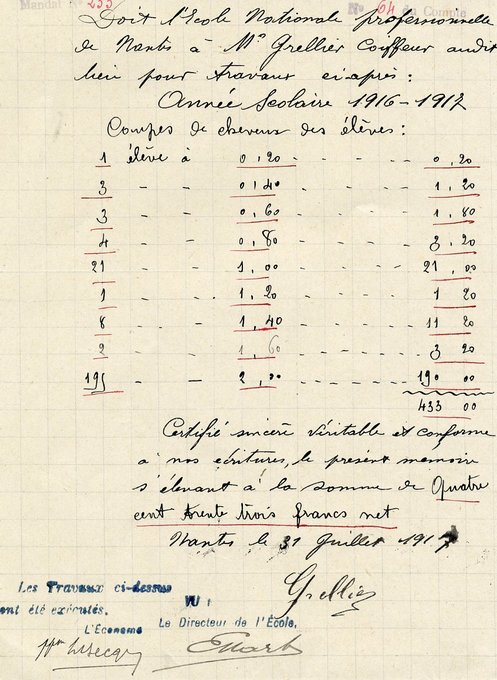 Mandat No 233
No 64 du Compte
Doit l'Ecole Nationale professionnelle
de Nantes à Mr Grellier Coiffeur audit
lieu pour travaux ci-après :
Année Scolaire 1916-1917
Coupes de cheveux des élèves :
1 élève à 0,20 - - - - 0,20
3 - - 0,40 - - - - 1,20
3 - - 0,60 - - - - 1,80
4 - - 0,80 - - - - 3,20
21 - - 1,00 - - - - 21,00
1 - - 1,20 - - - - 1 20
8 - - 1,40 - - - - 11 20
2 - - 1,60 - - - - 3 20
195 - - 2,00 - - - - 190 00
433 00
Certifié sincère véritable et conforme
à nos écritures, le présent memoire
s'élevant à la somme de Quatre
cent trente trois francs net
Nantes le 31 Juillet 1917
Grellier
Les Travaux ci-dessus
ont été exécutés.
L'Econome
VU :
Le Directeur de l'École,